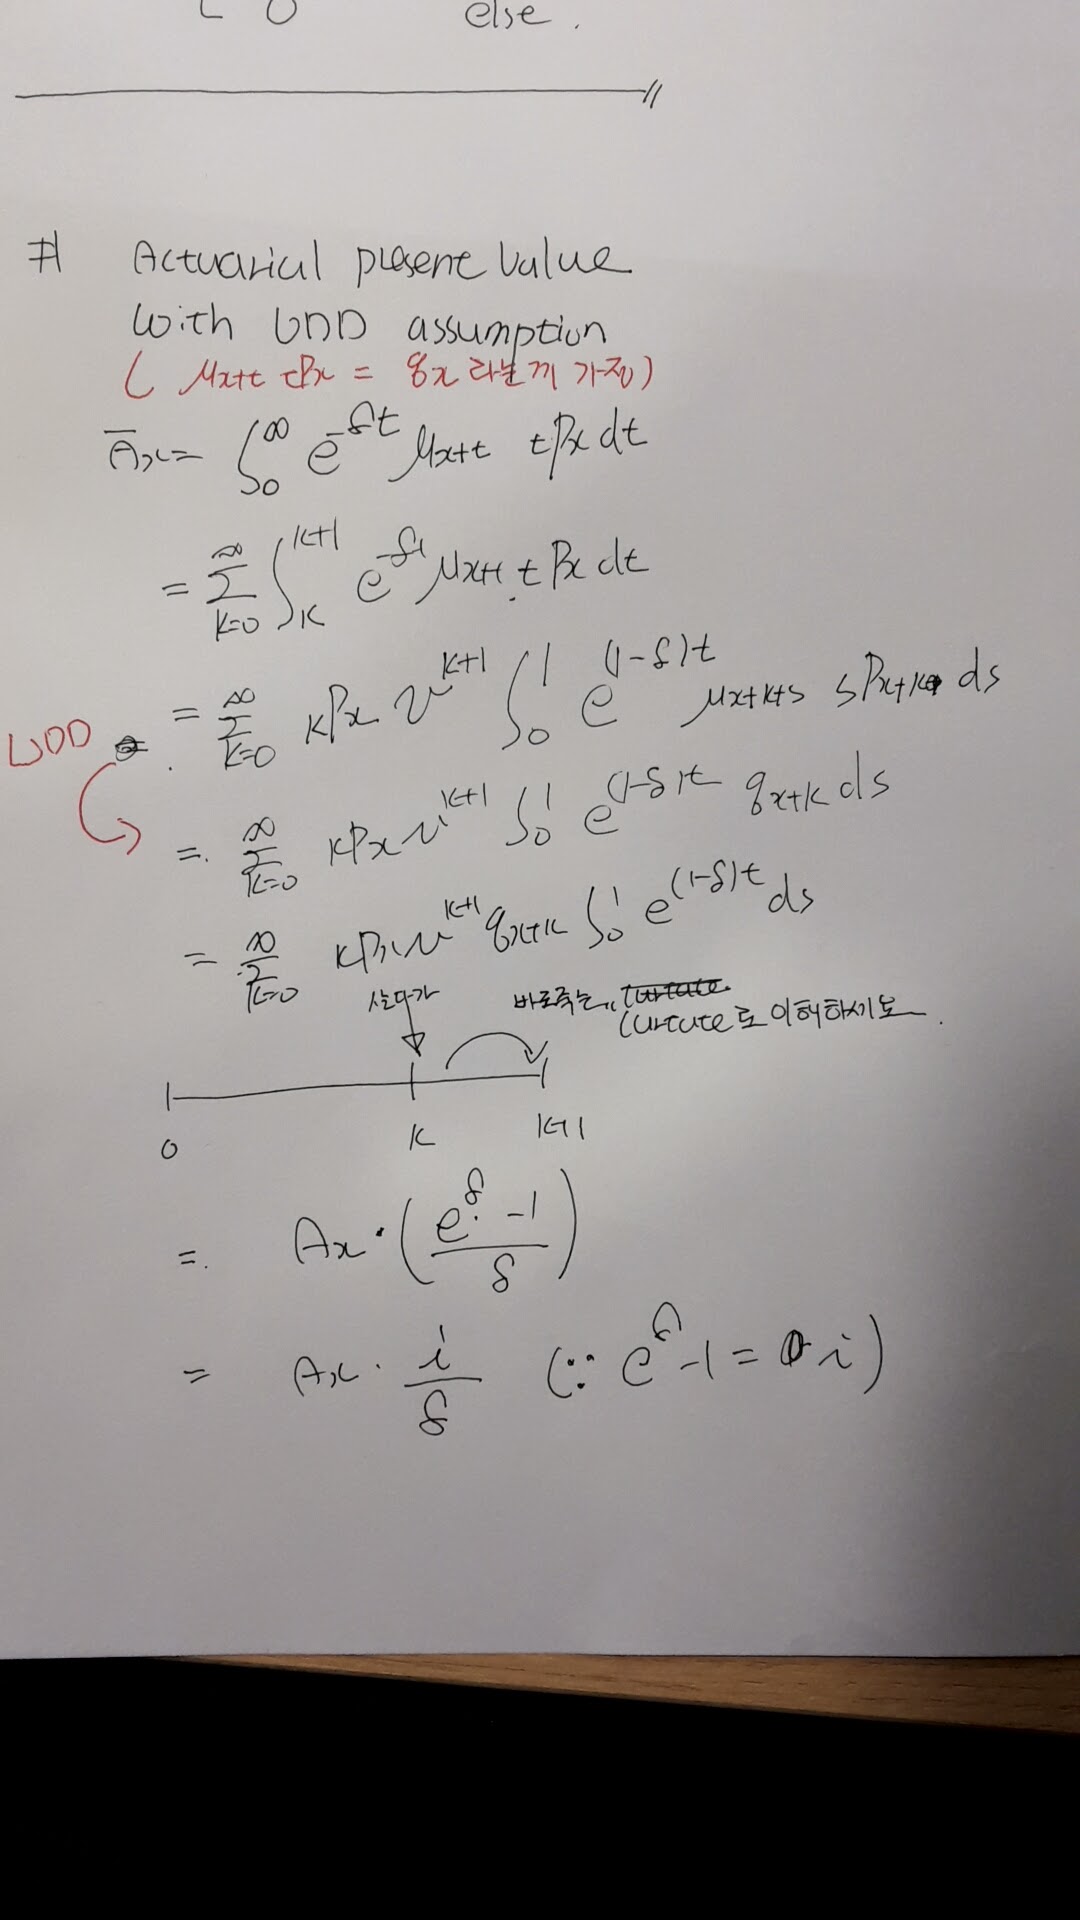 0 else.
# Actuarial present value
with UDD assumption
( μx+t tPx = qx 라는게 가정)
Āx = ∫₀^∞ e^-δt μx+t tPx dt
= Σ_{k=0}^∞ ∫_k^{k+1} e^-δt μx+t tPx dt
UDD = Σ_{k=0}^∞ kPx v^{k+1} ∫₀^1 e^{(1-δ)t} μx+k+s sPx+k ds
= Σ_{k=0}^∞ kPx v^{k+1} ∫₀^1 e^{(1-δ)t} q_{x+k} ds
= Σ_{k=0}^∞ kPx v^{k+1} q_{x+k} ∫₀^1 e^{(1-δ)t} ds
살다가 바로죽는,,
curtate로 이해하기도.
0 k k+1
= Ax · ( (e^δ - 1) / δ )
= Ax · i/δ (∵ e^δ - 1 = i)